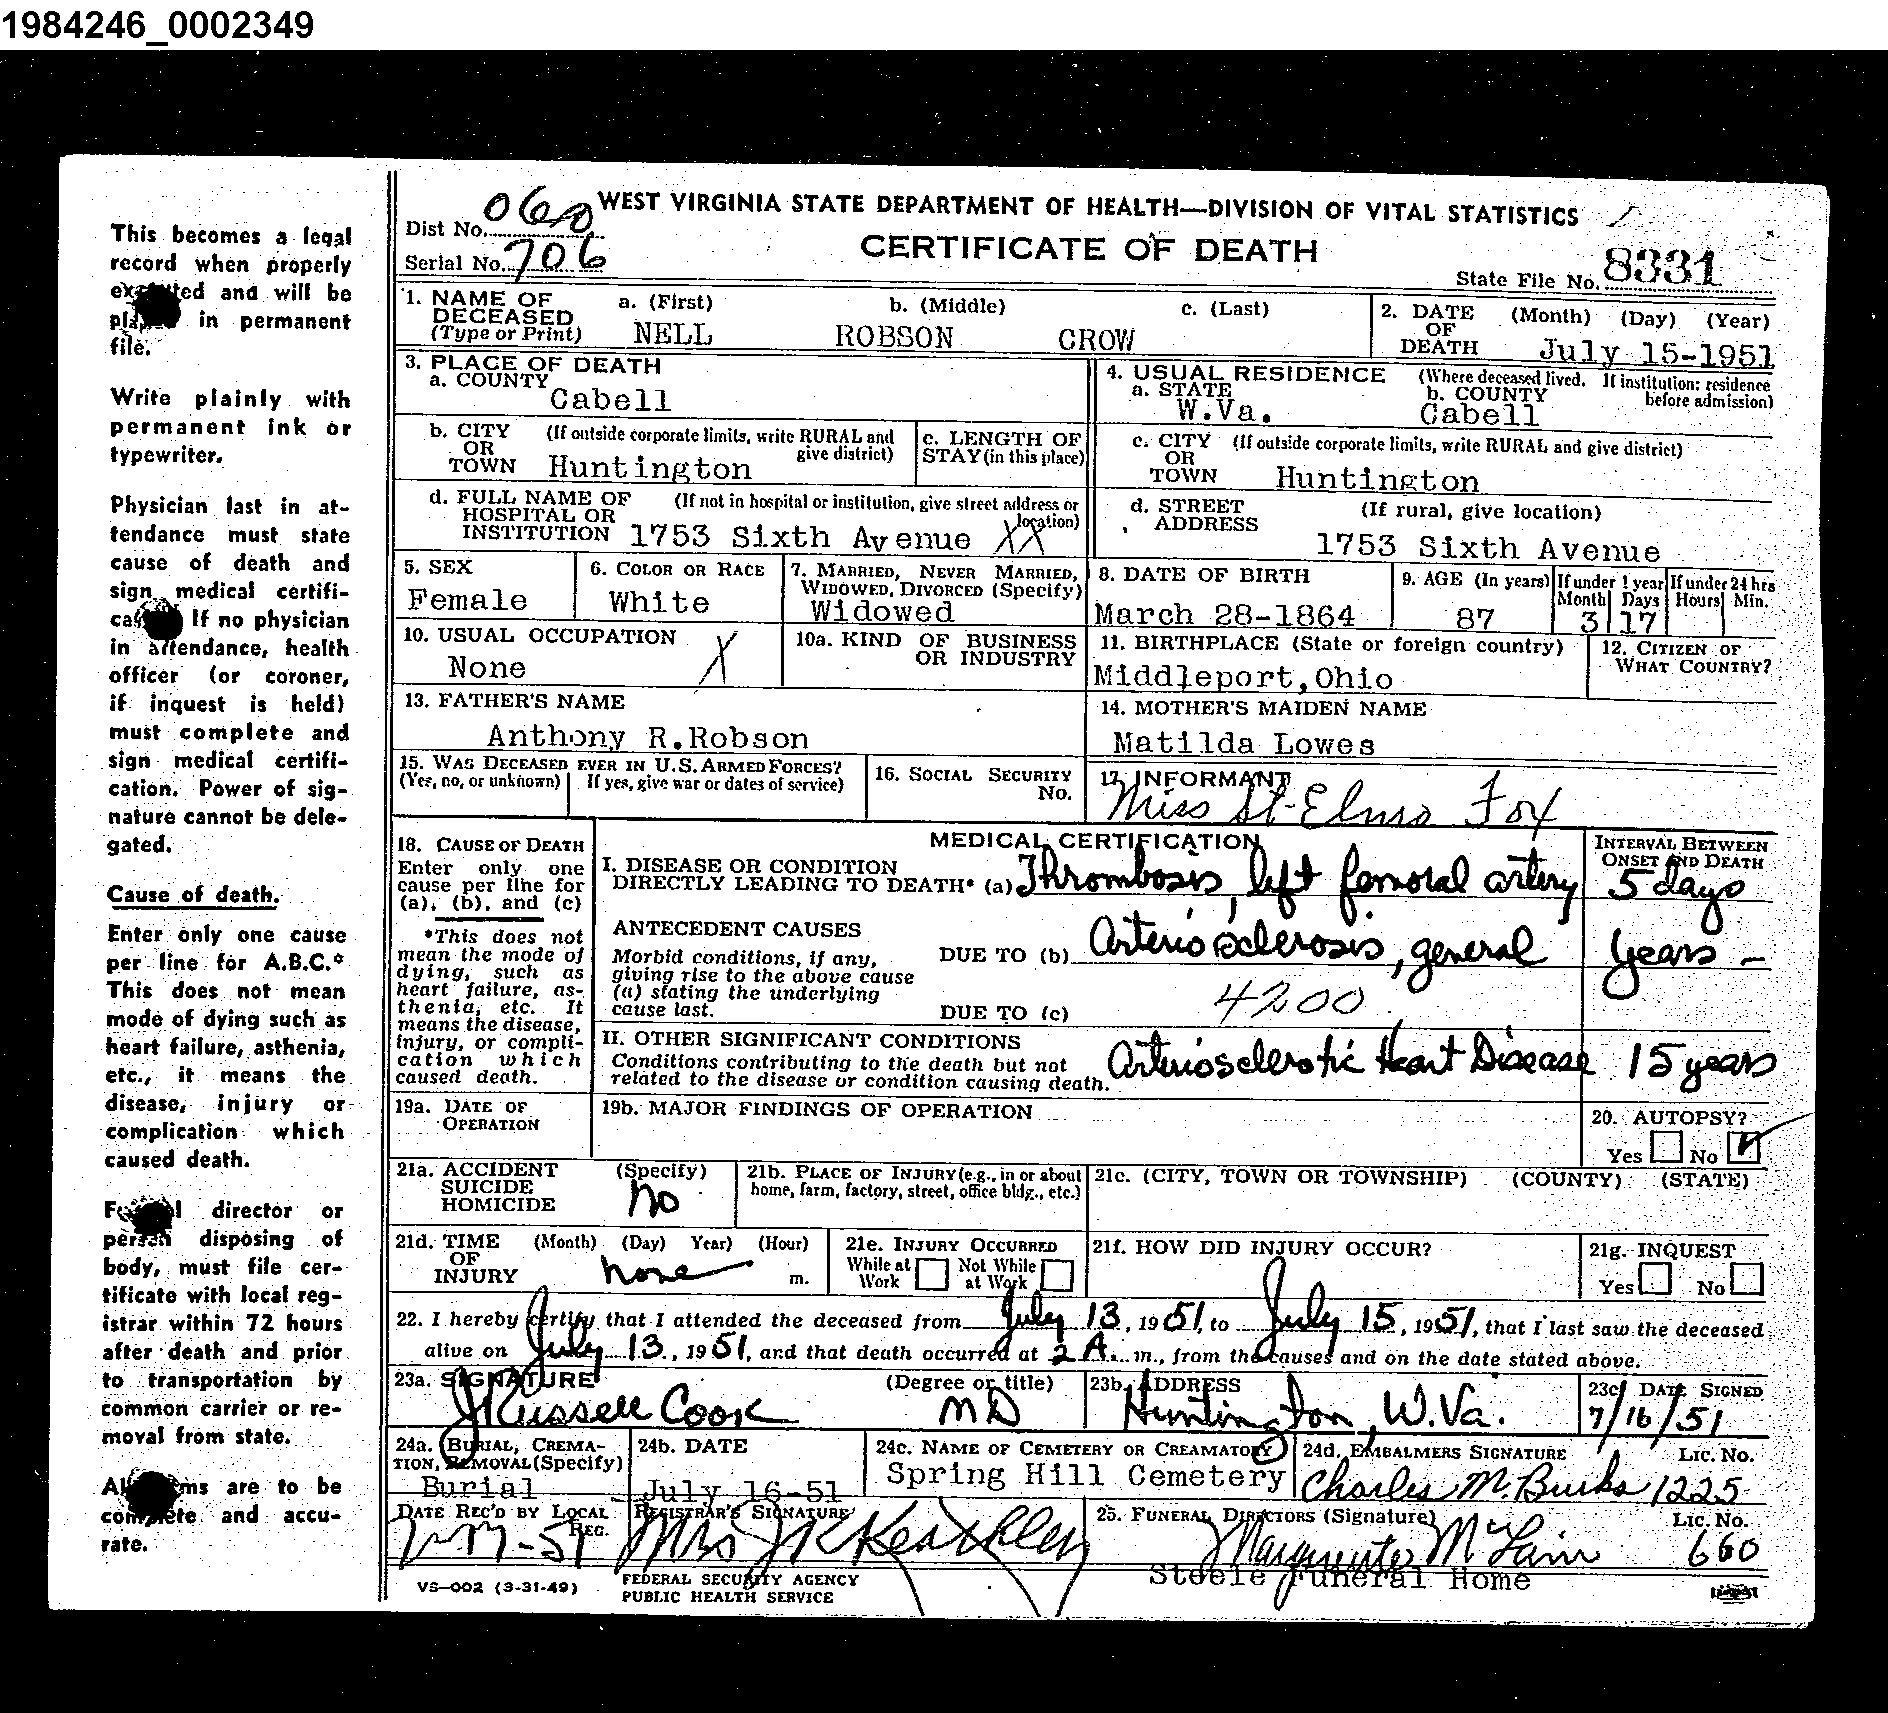 1984246_0002349
This becomes a legal
record when properly
and will be
in permanent
file.
Write plainly with
permanent ink or
typewriter.
Physician last in at-
tendance must state
cause of death and
sign medical certifi-
If no physician
in attendance, health
officer (or coroner,
if inquest is held)
must complete and
sign medical certifi-
cation. Power of sig-
nature cannot be dele-
gated.
Cause of death.
Enter only one cause
per line for A.B.C.*
This does not mean
mode of dying such as
heart failure, asthenia,
etc., it means the
disease, injury or
complication which
caused death.
director or
person disposing of
body, must file cer-
tificate with local reg-
istrar within 72 hours
after death and prior
to transportation by
common carrier or re-
moval from state.
are to be
complete and accu-
rate.
WEST VIRGINIA STATE DEPARTMENT OF HEALTH—DIVISION OF VITAL STATISTICS
Dist No. 060
CERTIFICATE OF DEATH
Serial No. 706
State File No. 8331
1. NAME OF DECEASED (Type or Print) a. (First) b. (Middle) c. (Last)
NELL ROBSON CROW
2. DATE OF DEATH (Month) (Day) (Year)
July 15-1951
3. PLACE OF DEATH
a. COUNTY
Cabell
4. USUAL RESIDENCE (Where deceased lived. If institution: residence before admission)
a. STATE W.Va. b. COUNTY Cabell
b. CITY OR TOWN (If outside corporate limits, write RURAL and give district)
Huntington
c. LENGTH OF STAY (in this place)
c. CITY OR TOWN (If outside corporate limits, write RURAL and give district)
Huntington
d. FULL NAME OF HOSPITAL OR INSTITUTION (If not in hospital or institution, give street address or location)
1753 Sixth Avenue XX
d. STREET ADDRESS (If rural, give location)
1753 Sixth Avenue
5. SEX
Female
6. COLOR OR RACE
White
7. MARRIED, NEVER MARRIED, WIDOWED, DIVORCED (Specify)
Widowed
8. DATE OF BIRTH
March 28-1864
9. AGE (In years)
87
If under 1 year Month Days
3 17
If under 24 hrs Hours Min.
10. USUAL OCCUPATION
None X
10a. KIND OF BUSINESS OR INDUSTRY
11. BIRTHPLACE (State or foreign country)
Middleport, Ohio
12. CITIZEN OF WHAT COUNTRY?
13. FATHER'S NAME
Anthony R. Robson
14. MOTHER'S MAIDEN NAME
Matilda Lowes
15. WAS DECEASED EVER IN U.S. ARMED FORCES?
(Yes, no, or unknown) If yes, give war or dates of service)
16. SOCIAL SECURITY No.
17. INFORMANT
Miss St-Elmo Fox
18. CAUSE OF DEATH
Enter only one
cause per line for
(a), (b), and (c)
*This does not
mean the mode of
dying, such as
heart failure, as-
thenia, etc. It
means the disease,
injury, or compli-
cation which
caused death.
MEDICAL CERTIFICATION
INTERVAL BETWEEN ONSET AND DEATH
I. DISEASE OR CONDITION
DIRECTLY LEADING TO DEATH* (a) Thrombosis, left femoral artery 5 days
ANTECEDENT CAUSES
Morbid conditions, if any,
giving rise to the above cause
(a) stating the underlying
cause last.
DUE TO (b) Arteriosclerosis, general years -
DUE TO (c) 4200
II. OTHER SIGNIFICANT CONDITIONS
Conditions contributing to the death but not
related to the disease or condition causing death.
Arteriosclerotic Heart Disease 15 years
19a. DATE OF OPERATION
19b. MAJOR FINDINGS OF OPERATION
20. AUTOPSY?
Yes No
21a. ACCIDENT SUICIDE HOMICIDE (Specify)
no
21b. PLACE OF INJURY (e.g., in or about home, farm, factory, street, office bldg., etc.)
21c. (CITY, TOWN OR TOWNSHIP) (COUNTY) (STATE)
21d. TIME OF INJURY (Month) (Day) Year) (Hour)
none m.
21e. INJURY OCCURRED
While at Work Not While at Work
21f. HOW DID INJURY OCCUR?
21g. INQUEST
Yes No
22. I hereby certify that I attended the deceased from July 13, 1951, to July 15, 1951, that I last saw the deceased
alive on July 13, 1951, and that death occurred at 2 A. m., from the causes and on the date stated above.
23a. SIGNATURE (Degree or title)
J Russell Cook MD
23b. ADDRESS
Huntington, W.Va.
23c. DATE SIGNED
7/16/51
24a. BURIAL, CREMATION, REMOVAL (Specify)
Burial
24b. DATE
July 16-51
24c. NAME OF CEMETERY OR CREAMATORY
Spring Hill Cemetery
24d. EMBALMERS SIGNATURE LIC. NO.
Charles M. Burks 1225
DATE REC'D BY LOCAL REG.
7-17-51
REGISTRAR'S SIGNATURE
25. FUNERAL DIRECTORS (Signature) LIC. NO.
Marguerite McLain 660
Steele Funeral Home
VS—002 (3-31-49)
FEDERAL SECURITY AGENCY
PUBLIC HEALTH SERVICE